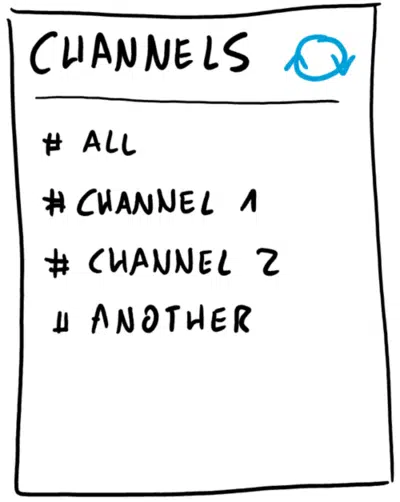 CHANNELS
# ALL
# CHANNEL 1
# CHANNEL 2
# ANOTHER